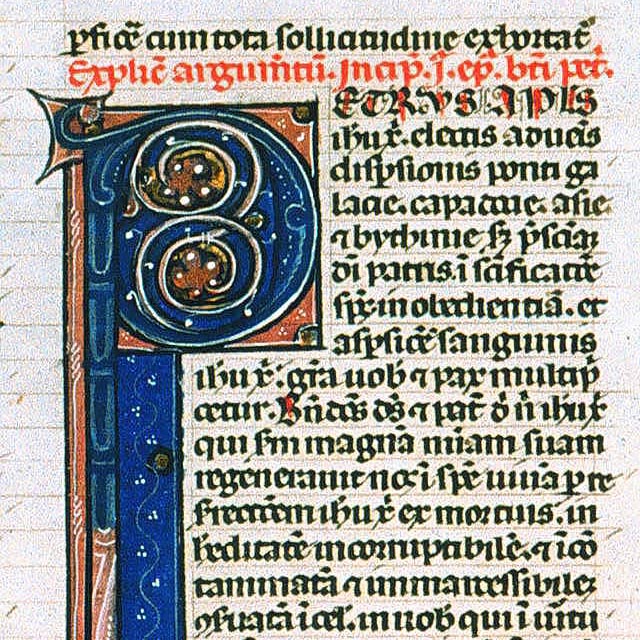 ꝑficẽ cum tota sollicitudine exhortat᷑
Explic̃ argum̃tũ. Incip̃. I. ep̃. bt̃i pet̃.
PETRVS APLS
ihux̃. electis aduẽis
disp̃sionis ponti ga
lacie. capadocie. asie.
⁊ bythinie sz̃ p̃sciaꝫ
dei patris. ĩ scĩficatiõe
sp̃x̃. in obedientiã. et
asp̃sioẽ sanguinis
ihux̃. gr̃a uob ⁊ pax multip̃
cetur. Bñdc̃s ds̃ ⁊ pat̃ d̃ ñ ihux̃
qui sm̃ magnã miãm suam
regenerauit nos ĩ spẽ uiuã ꝑ re
surrectõem ihux̃ ex mortuis. in
heditatẽ incorruptibilẽ. ⁊ ĩcõ
taminatã ⁊ inmarcessibileꝫ
ꝯseruatã ĩ cel̃. in uob qui ĩ uirtu